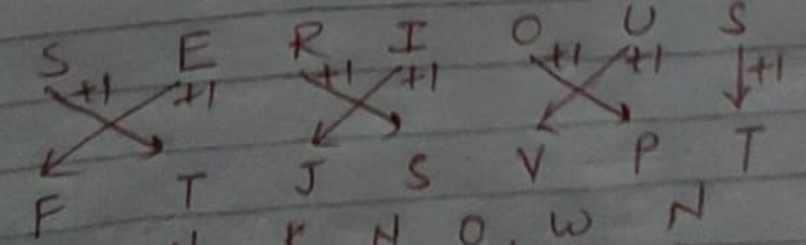 S E R I O U S
+1 +1 +1 +1 +1 +1 +1
F T J S V P T
K N O W N